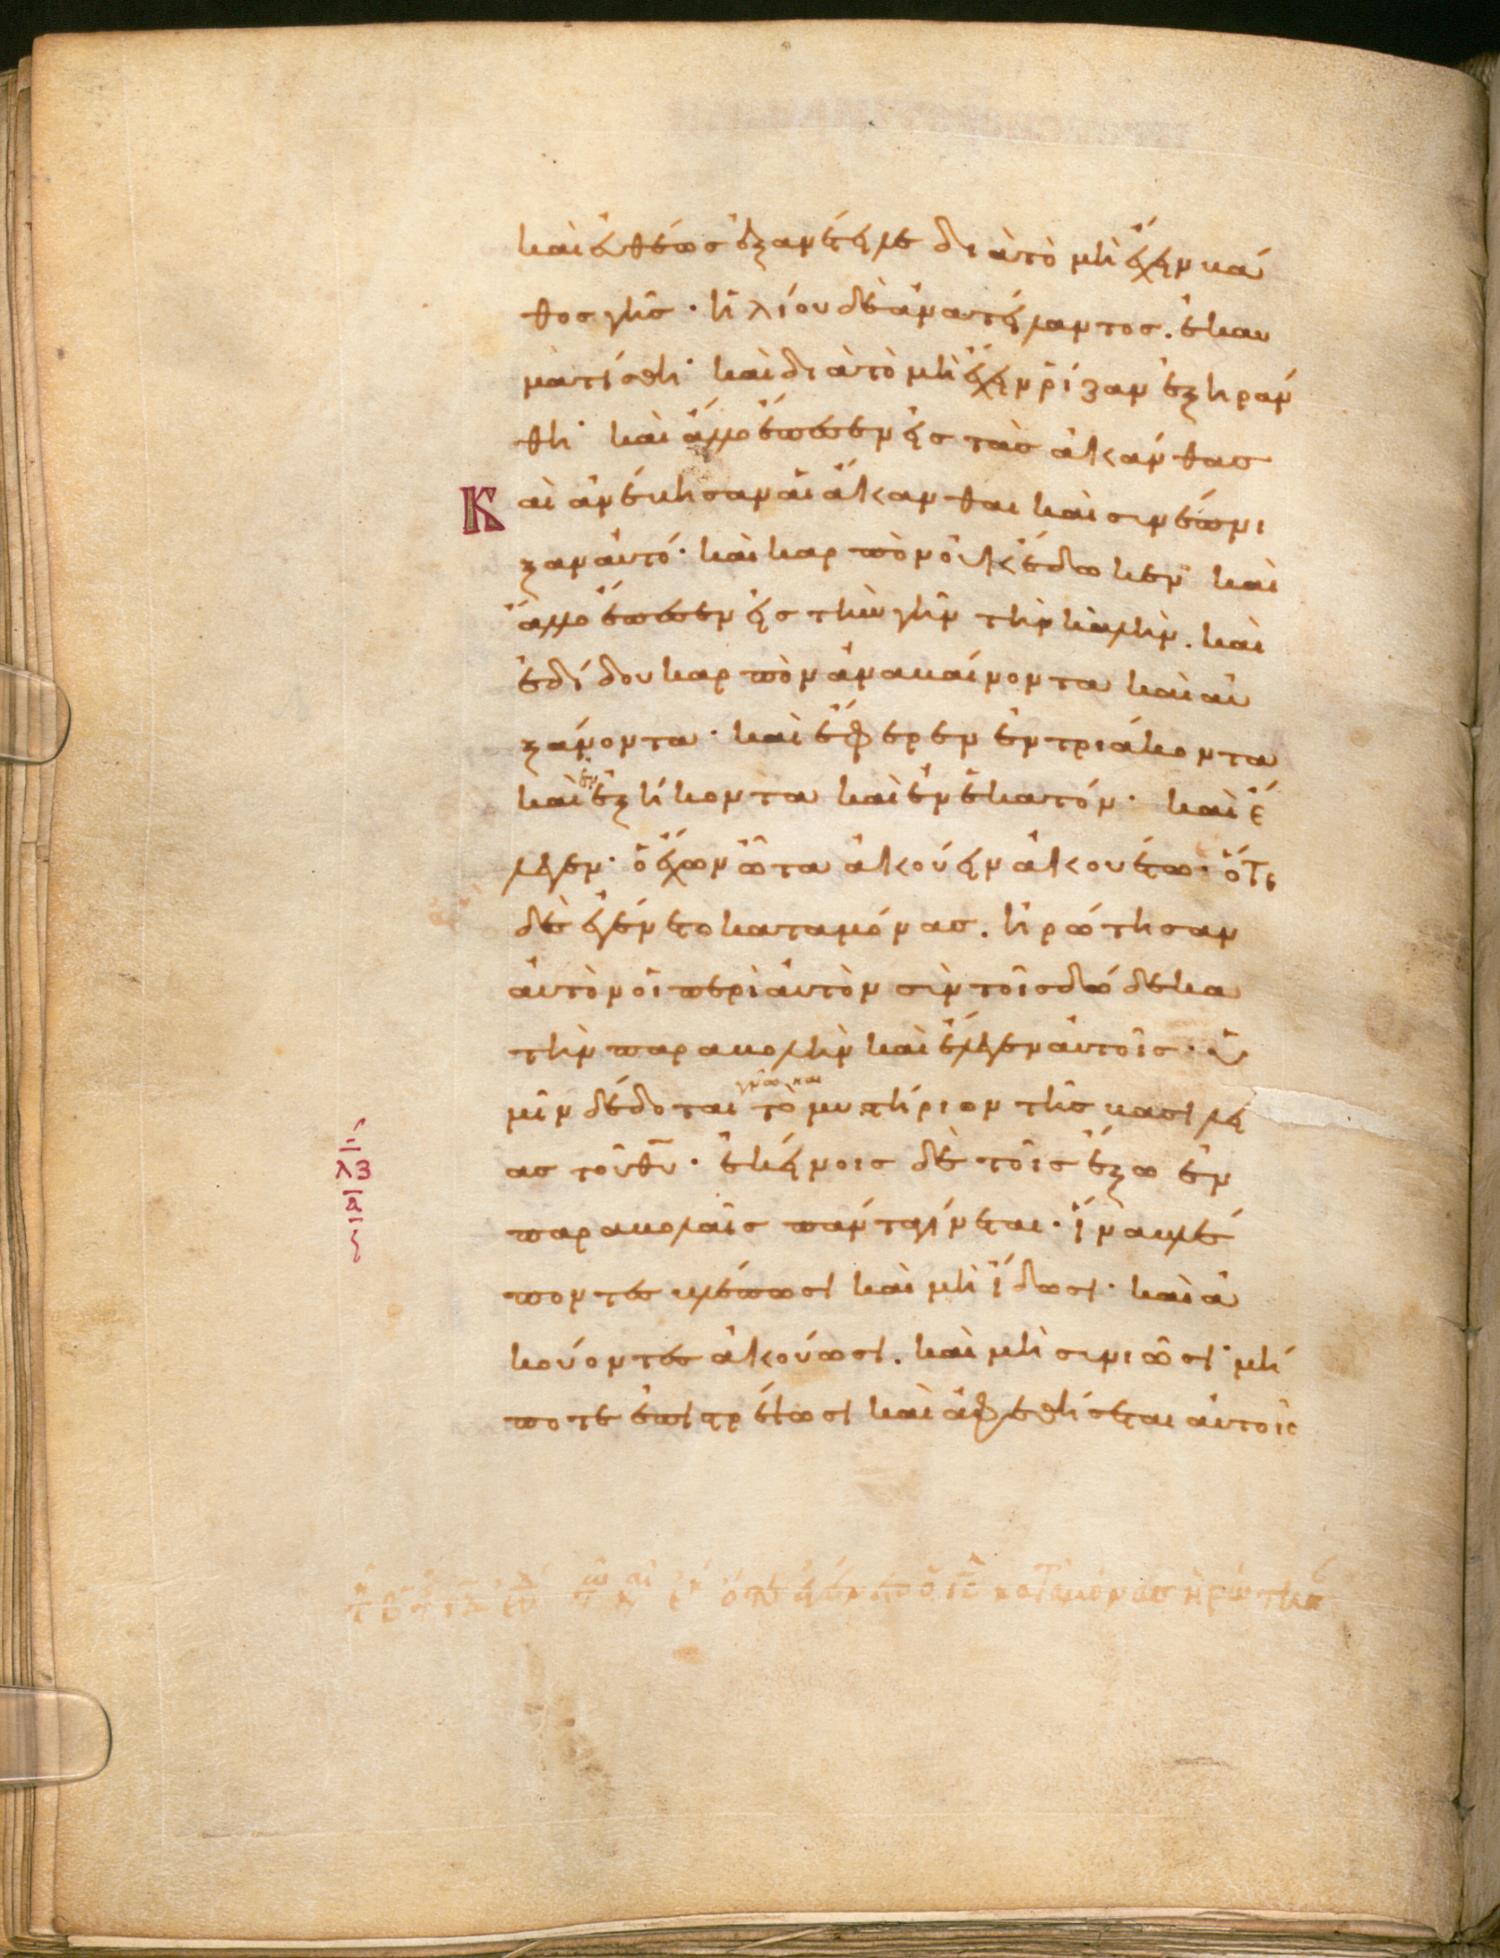 καὶ ἐυθέως ἐξανέτειλε διὰ τὸ μὴ ἔχειν βά
θος γῆς· ἡλίου δὲ ἀνατείλαντος. ἐκαυ
ματίσθη· καὶ διὰ τὸ μὴ ἔχειν ῥίζαν ἐξηράν
θη· καὶ ἄλλο ἔπεσεν εἰς τὰς ἀκάνθας
Καὶ ἀνέβησαν αἱ ἄκανθαι καὶ συνέπνι
ξαν ἀυτό· καὶ καρπὸν οὐκ ἔδωκεν· καὶ
ἄλλο ἔπεσεν εἰς τὴν γῆν τὴν καλὴν. καὶ
ἐδίδου καρπὸν ἀναβαίνοντα καὶ ἀυ
ξάνοντα· καὶ ἔφερεν ἐν τριάκοντα
καὶ ἐν ἑξήκοντα καὶ ἐν ἑκατόν· καὶ ἔ
λεγεν· ὁ ἔχων ὦτα ἀκούειν ἀκουέτω· ὅτε
δὲ ἐγένετο καταμόνας. ἠρώτησαν
ἀυτὸν οἱ περὶ ἀυτὸν σὺν τοῖς δώδεκα
τὴν παραβολὴν καὶ ἔλεγεν ἀυτοῖς· ὑ
μῖν δέδοται γνῶναι τὸ μυστήριον τῆς βασιλεί
ας τοῦ θυ· ἐκείνοις δὲ τοῖς ἔξω ἐν
παραβολαῖς πάντα γίνεται· ἵνα βλέ
ποντες βλέπωσι καὶ μὴ ἴδωσι· καὶ ἀ
κούοντες ἀκούωσι. καὶ μὴ συνιῶσι· μή
ποτε ἐπιστρέψωσι καὶ ἀφεθήσεται ἀυτοῖς
λζ
α
ἐγένετο ὁ ις καταμόνας ἠρώτησ